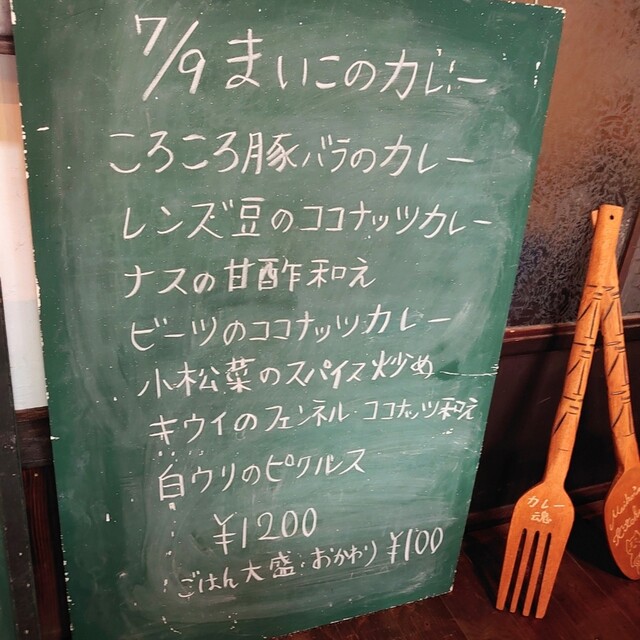 7/9 まいこのカレー
ころころ豚バラのカレー
レンズ豆のココナッツカレー
ナスの甘酢和え
ビーツのココナッツカレー
小松菜のスパイス炒め
キウイのフェンネル・ココナッツ和え
白ウリのピクルス
¥1200
ごはん大盛・おかわり ¥100
カレー
魂